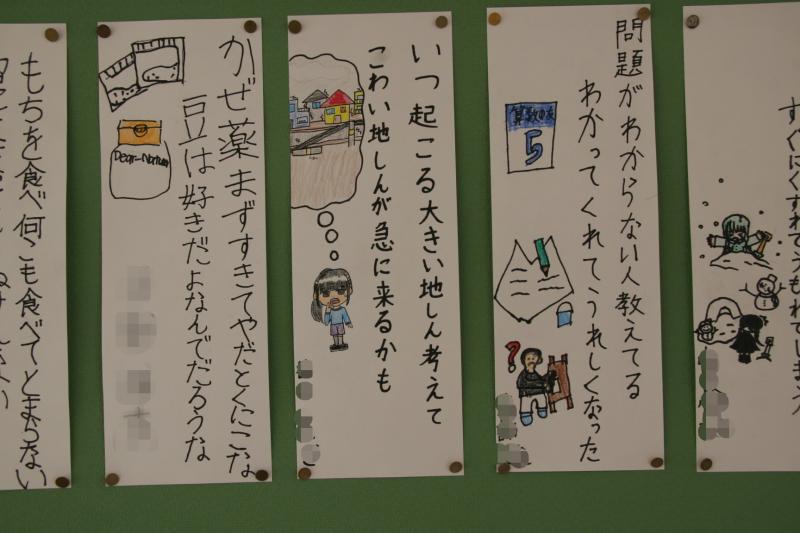 すぐにくずれてうもれてしまう
問題がわからない人教えてる
わかってくれてうれしくなった
算数の友
5
いつ起こる大きい地しん考えて
こわい地しんが急に来るかも
かぜ薬まずすきてやだとくにこな
豆は好きだよなんでだろうな
Dear-Natura
もちを食べ何こも食べてとまらない